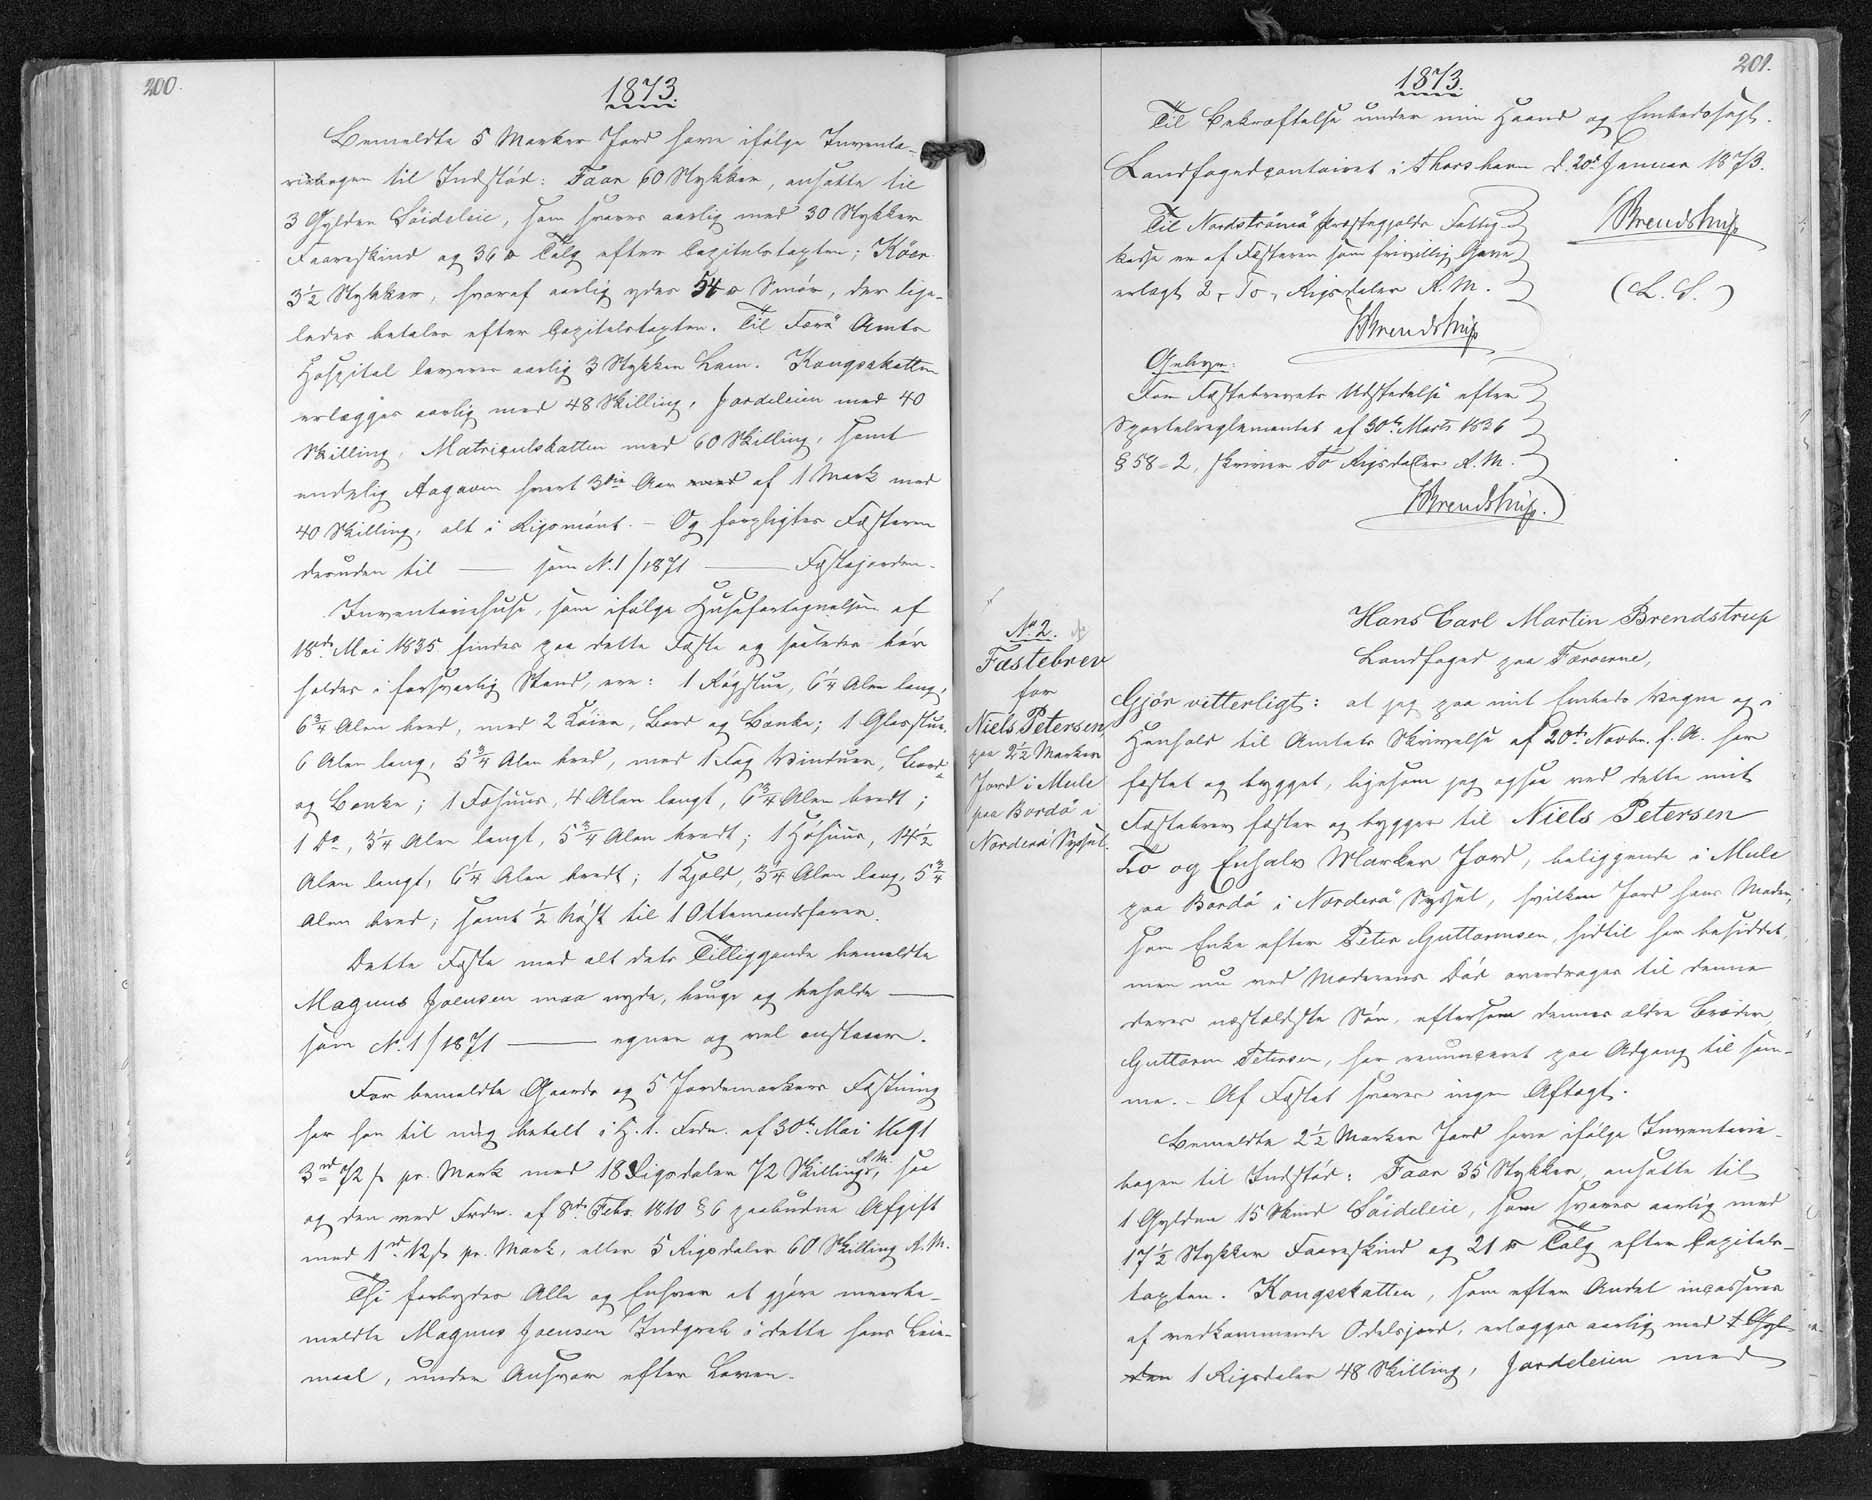 200.
1873.
Bemeldte 5 Marker Jord have ifølge Inventa-
riebogen til Indstød: Faar 60 Stykker, ansatte til
3 Gylden Søideleie, som svares aarlig med 30 Stykker
Faareskind og 36 ℔ Talg efter Capitelstaxten; Køer
3½ Stykker, hvoraf aarlig ydes 54 ℔ Smør, der lige-
ledes betales efter Capitelstaxten. Til Færø Amts
Hospital leveres aarlig 3 Stykker Lam. Kongsskatten
erlægges aarlig med 48 Skilling, Jordeleien med 40
Skilling, Matriculskatten med 60 Skilling, samt
endelig Aagaven hvert 3die Aar med af 1 Mark med
40 Skilling, alt i Rigsmønt. – Og forpligtes Fæsteren
desuden til — som N. 1/1871 — Fæstejorden.
Inventariehuse, som ifølge Husefortegnelsen af
18de Mai 1835 findes paa dette Fæste og saaledes bør
holdes i forsvarlig Stand, ere: 1 Røgstue, 6¼ Alen lang,
6¾ Alen bred, med 2 Køier, Bord og Bænke; 1 Glasstue,
6 Alen lang, 5¾ Alen bred, med 1 Fag Vinduer, Bord
og Bænke; 1 Fæhuus, 4 Alen langt, 6¾ Alen bredt;
1 Do, 3¼ Alen langt, 5¾ Alen bredt; 1 Høhuus, 14½
Alen langt, 6¼ Alen bredt; 1 Hjald, 3¾ Alen lang, 5¾
Alen bred; samt ½ Nøst til 1 Ottemandsfarer.
Dette Fæste med alt dets Tilliggende bemeldte
Magnus Joensen maa nyde, bruge og beholde —
som N. 1/1871 — egner og vel anstaaer.
For bemeldte Gaards og 5 Jordemarkers Fæstning
har han til mig betalt i H. t. Frdn. af 30te Mai 1691
3 rd 72 s pr. Mark med 18 Rigsdaler 72 Skilling R.M., saa
og den ved Frdn. af 8de Febr. 1810 § 6 paabudne Afgift
med 1 rd 12 s pr. Mark, eller 5 Rigsdaler 60 Skilling R.M.
Thi forbydes Alle og Enhver at gjøre meerbe-
meldte Magnus Joensen Indgreb i dette hans Leie-
maal, under Ansvar efter Loven.
201.
1873.
Til Bekræftelse under min Haand og Embedssegl.
Landfogedcontoiret i Thorshavn d. 20de Januar 1873.
Brendstrup
(L. S.)
Til Nordstrømø Præstegjelds Fattig-
kasse er af Fæsteren som frivillig Gave
erlagt 2, To, Rigsdaler R.M.
HBrendstrup
Gebyr:
For Fæstebrevets Udstedelse efter
Sportelreglementet af 30te Marts 1836
§ 58-2, skriver To Rigsdaler R.M.
HBrendstrup.
No. 2.
Fæstebrev
for
Niels Petersen,
paa 2½ Marker
Jord i Mule
paa Bordø i
Norderø Syssel.
Hans Carl Martin Brendstrup
Landfoged paa Færøerne,
Gjør vitterligt: at jeg paa mit Embeds Vegne og i
Henhold til Amtets Skrivelse af 20de Novbr. f. A. har
fæstet og bygget, ligesom jeg ogsaa ved dette mit
Fæstebrev fæster og bygger til Niels Petersen
To og Enhalv Marker Jord, beliggende i Mule
paa Bordø i Norderø Syssel, hvilken Jord hans Moder,
som Enke efter Peter Guttormsen, hidtil har besiddet,
men nu ved Moderens Død overdrages til denne
deres næstældste Søn, eftersom dennes ældre Broder,
Guttorm Petersen, har renunceret paa Adgang til sam-
me. – Af Fæstet svares ingen Aftægt.
Bemeldte 2½ Marker Jord have ifølge Inventarie-
bogen til Indstød: Faar 35 Stykker, ansatte til
1 Gylden 15 Skind Søideleie, som svares aarlig med
17½ Stykker Faareskind og 21 ℔ Talg efter Capitels-
taxten. Kongsskatten, som efter Andet incasseres
af vedkommende Odelsjord, erlægges aarlig med 1 Gyl-
den 1 Rigsdaler 48 Skilling, Jordeleien med